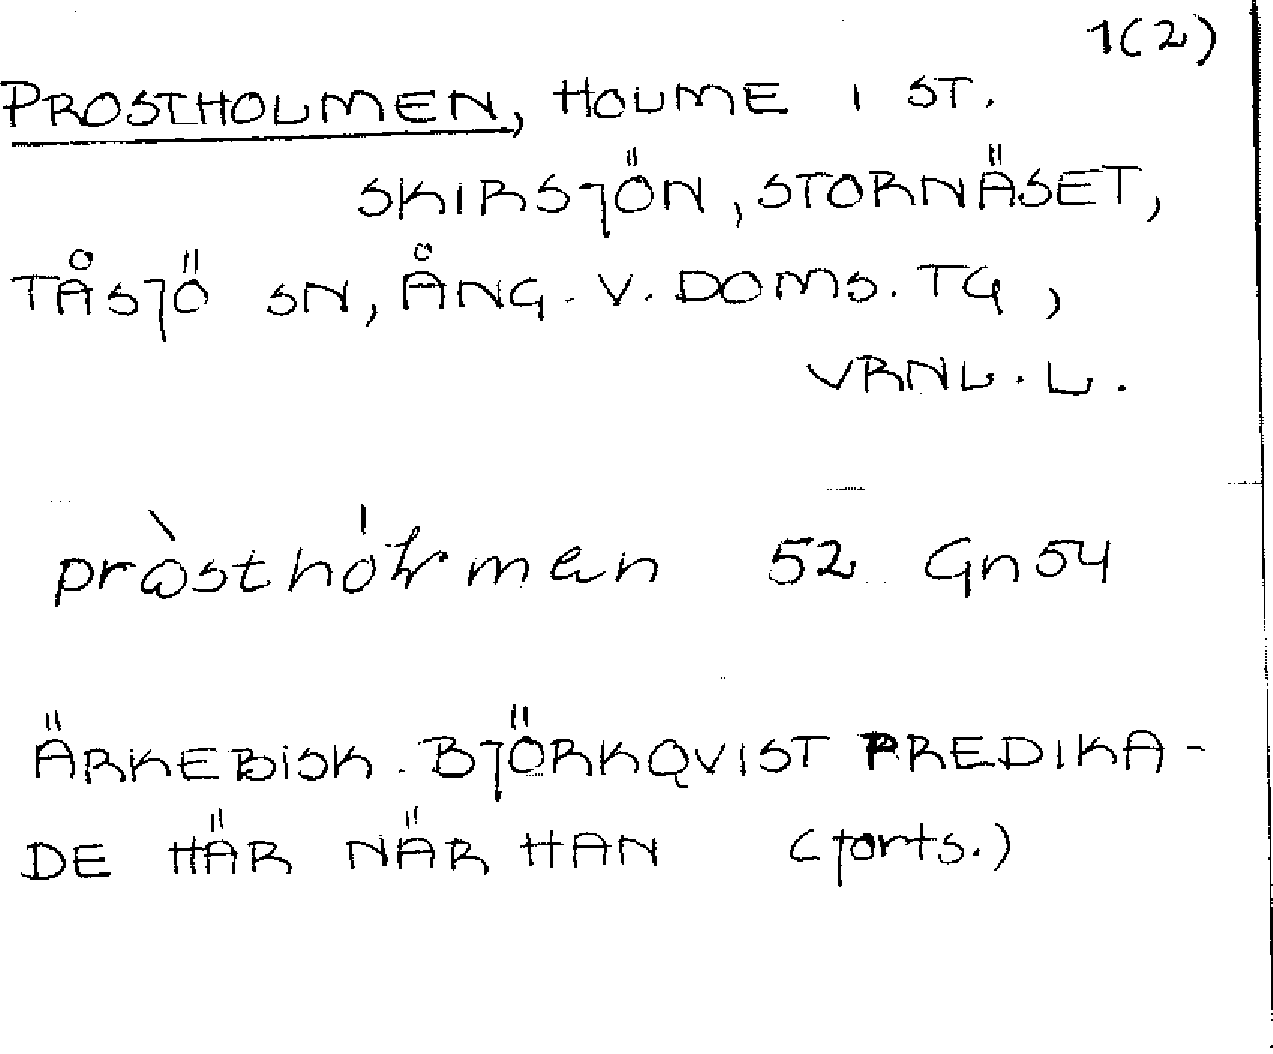 1(2)
PROSTHOLMEN, HOLME I ST.
SKIRSJÖN, STORNÄSET,
TÅSJÖ SN, ÅNG. V. DOMS. TG,
VRNL. L.
pròsthólmen 52 Gn54
ÄRKEBISK. BJÖRKQVIST PREDIKA-
DE HÄR NÄR HAN (forts.)